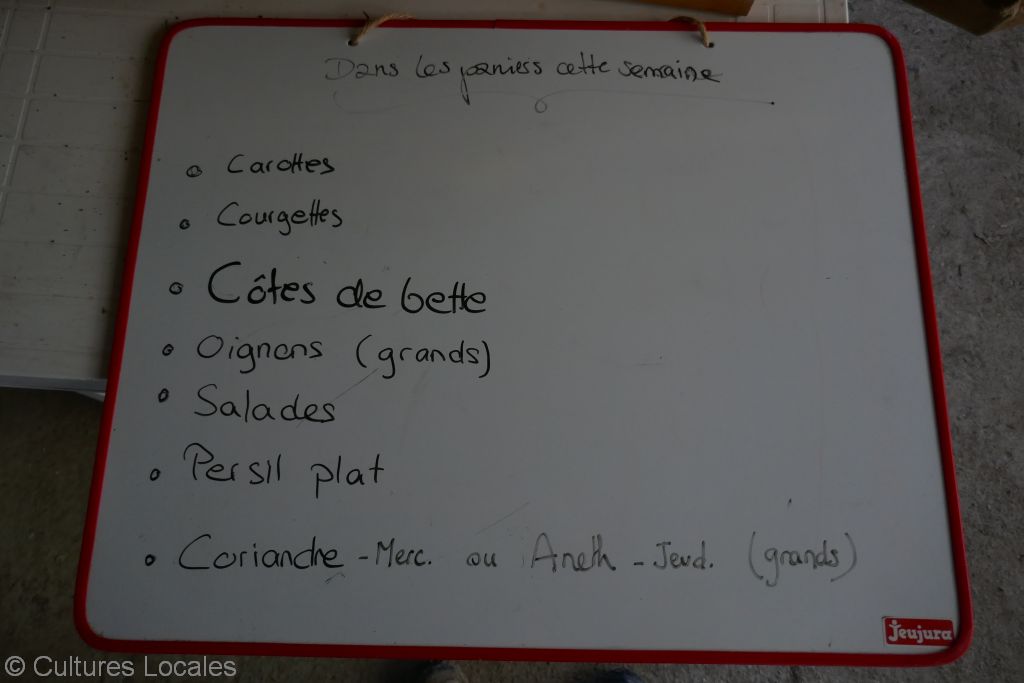 Dans les paniers cette semaine
Carottes
Courgettes
Côtes de bette
Oignons (grands)
Salades
Persil plat
Coriandre - Merc. ou Aneth - Jeud. (grands)
Jeujura
© Cultures Locales